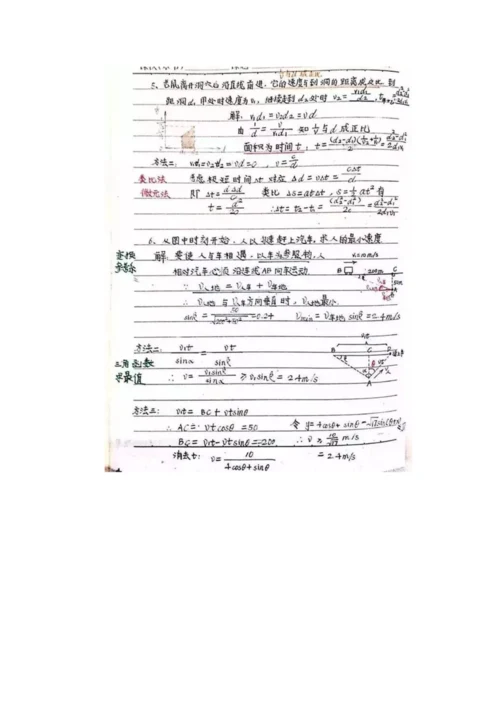 5. 老鼠离开洞穴沿直线前进，它的速度与到洞的距离成反比 到
距洞d₁ 甲处时速度为v₁，继续走到d₂处时 v₂= v₁d₁/d₂，
解：v₁d₁=v₂d₂=vd
由 1/d = v/v₁d₁ 知 1/v 与 d 成正比
面积为时间 t：t=
方法二：v₁d₁=v₂d₂=vd=c，v=c/d
类比法 考虑极短时间Δt 对应 Δd=vΔt=cΔt/d
微元法 即 Δt=dΔd/c 类比 Δs=atΔt，s=½at² 有
t=d²/2c ∴Δt=t₂-t₁=(d₂²-d₁²)/2c=(d₂²-d₁²)/2d₁v₁
6. 从图中时刻开始，人以 速 赶上汽车，求人的最小速度
解 要使人与车相遇，以车为参照物，人
相对汽车必须沿连线AB向车运动.
∴ v人地 = v人车 + v车地
∴ v人地 与 v人车方向垂直时，v人地最小.
sinβ=50/√(200²+50²)=0.24 Vmin=v车地 sinβ=2.4m/s
方法二： v₁t/sinα = vt/sinβ
三角函数
求最值 ∴ v=v₁sinβ/sinα ≥ v₁sinβ = 2.4m/s
方法三： v₁t = BC + vtsinθ
∴ AC = vtcosθ = 50
BC = v₁t-vtsinθ = 200
消去t：v=10/(4cosθ+sinθ)
令 y=4cosθ+sinθ
= 2.4m/s